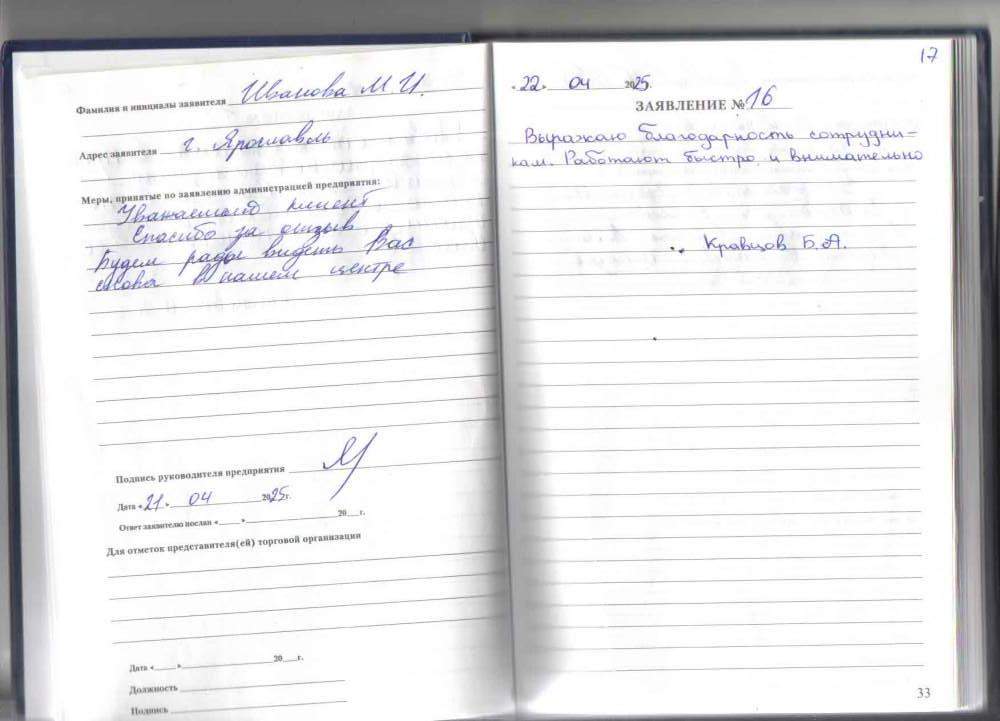 Фамилия и инициалы заявителя Иванова М. И.
Адрес заявителя г. Ярославль
Меры, принятые по заявлению администрацией предприятия:
Уважаемый клиент
Спасибо за отзыв
Будем рады видеть Вас
снова в нашем центре
Подпись руководителя предприятия
Дата «21» 04 2025г.
Ответ заявителю послан «____» 20__г.
Для отметок представителя(ей) торговой организации
Дата «____» 20__г.
Должность
Подпись
17
«22» 04 2025г.
ЗАЯВЛЕНИЕ №16
Выражаю благодарность сотрудни=
кам. Работают быстро и внимательно
Кравцов Б.А.
33